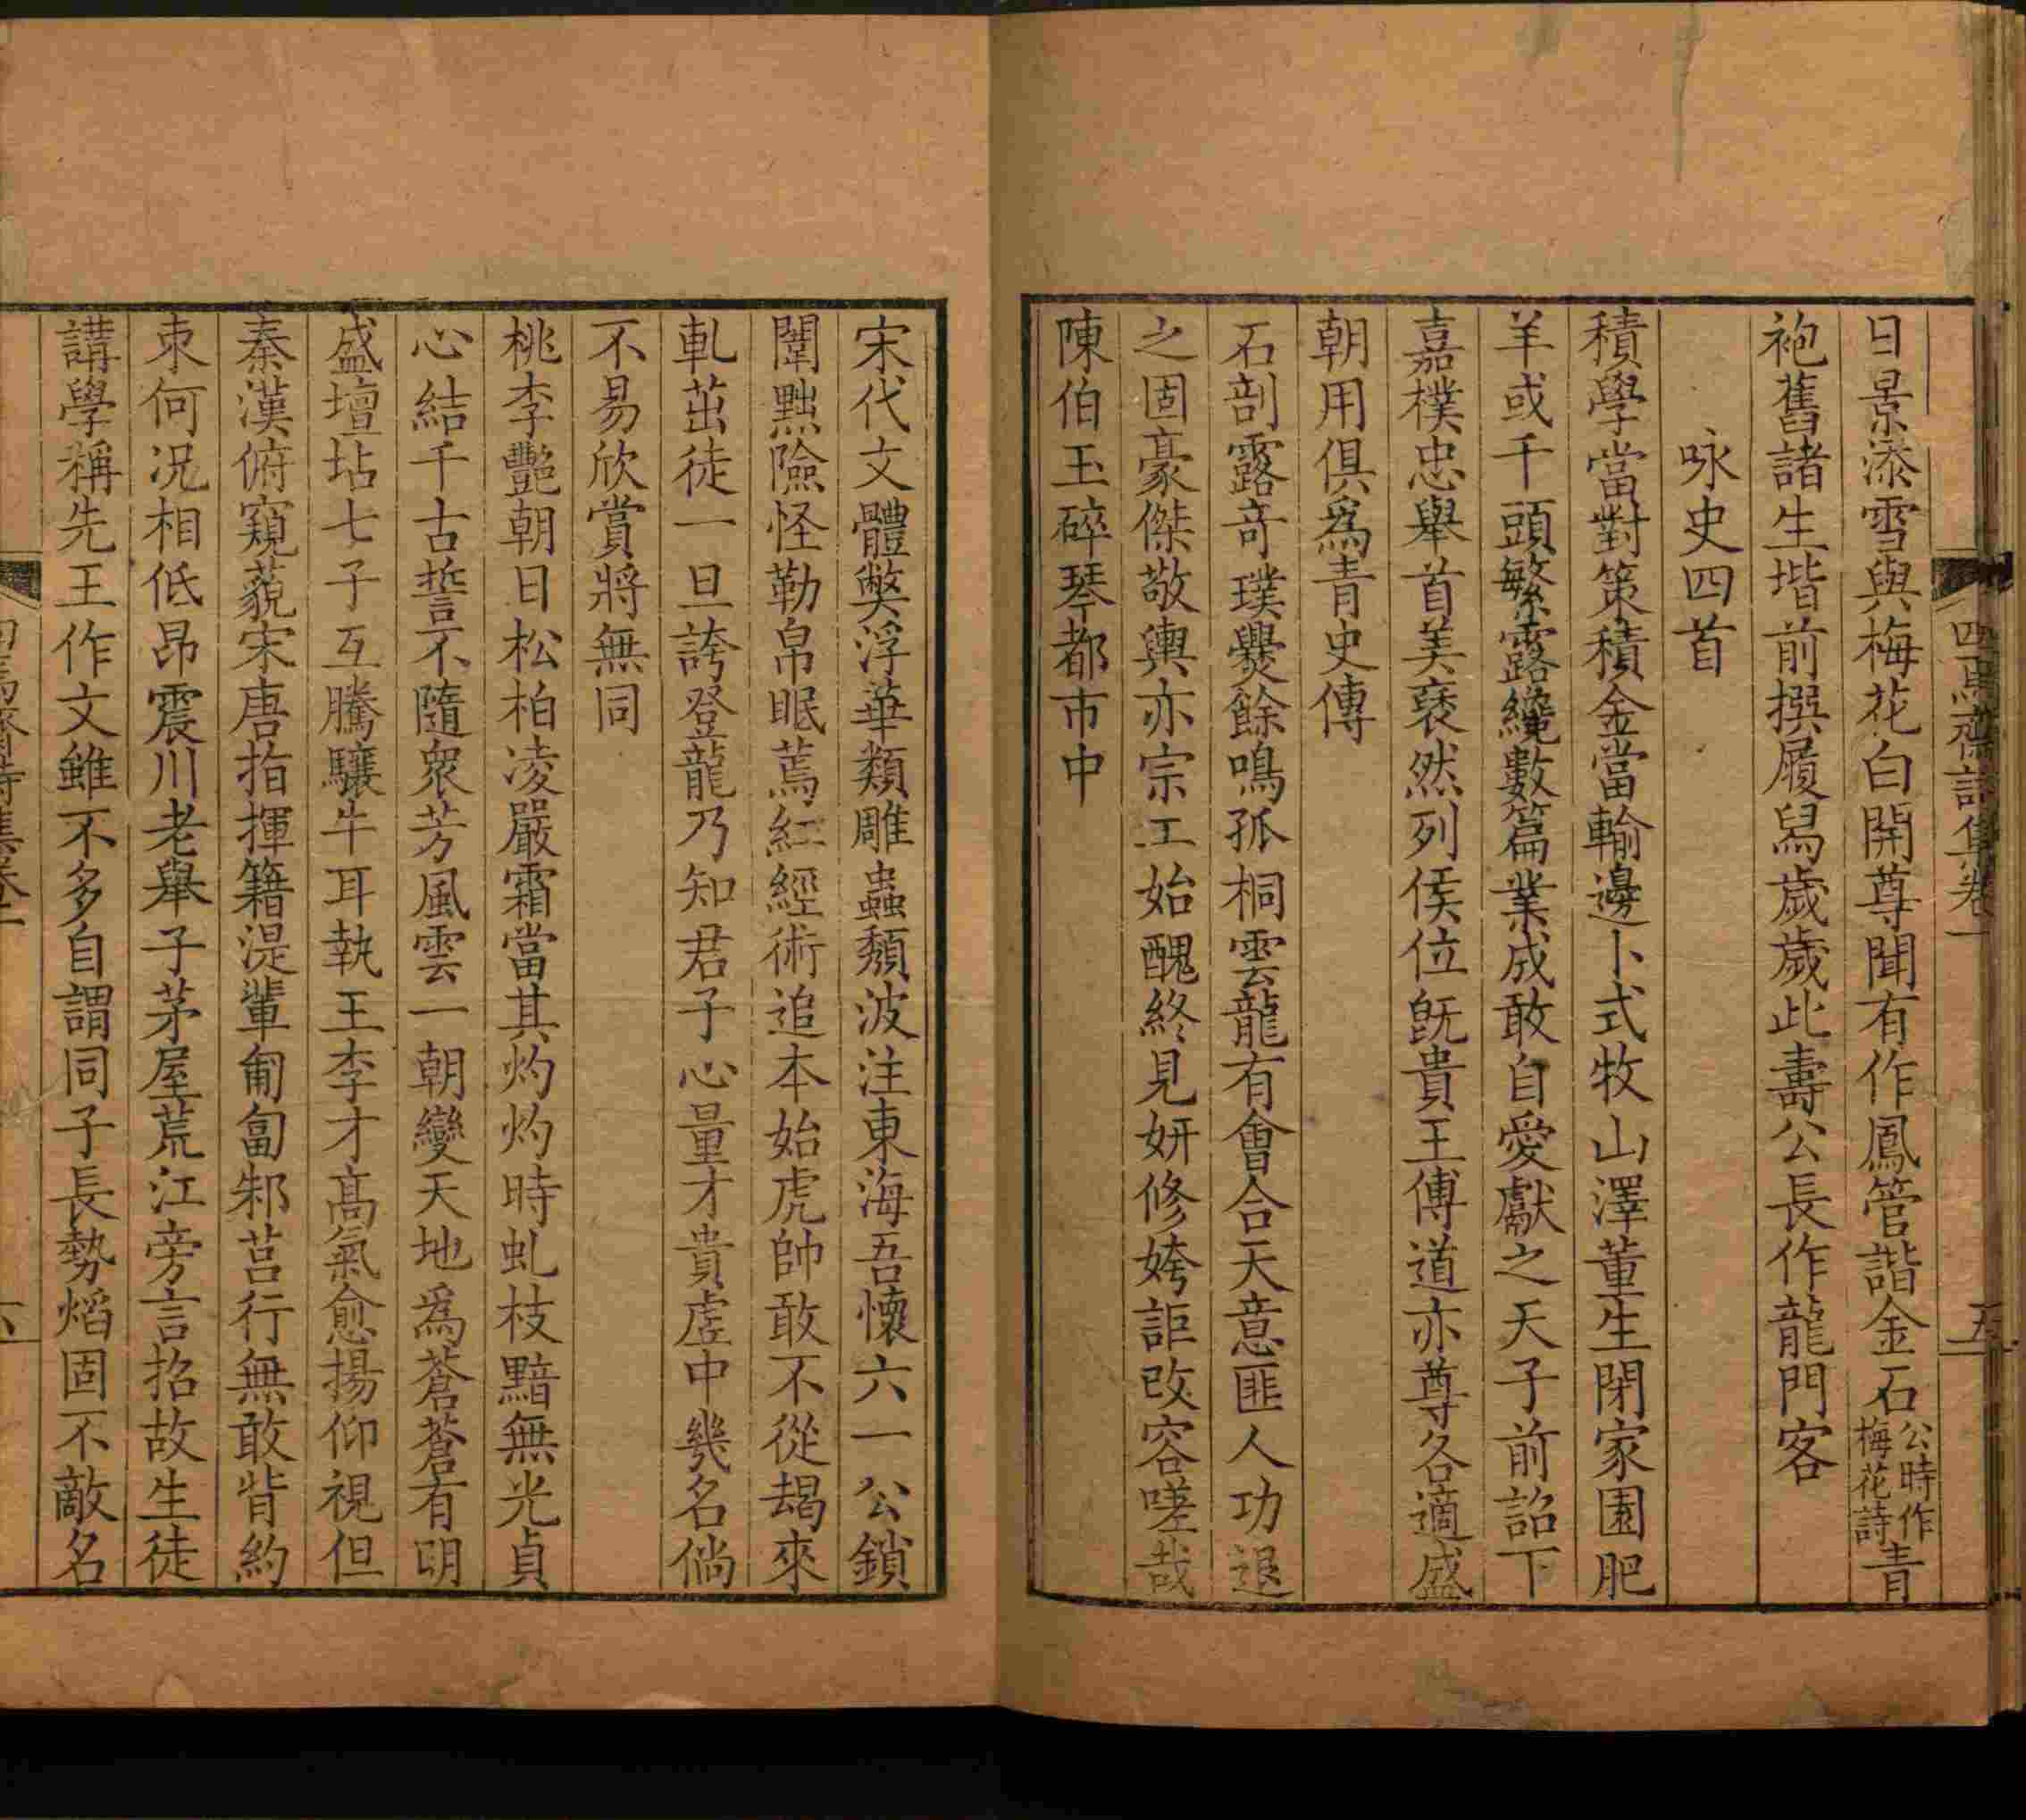 四焉齋詩集卷一
五
日景添雪與梅花白開尊聞有作鳳管諧金石公時作梅花詩青
袍舊諸生堦前撰履舄歲歲此壽公長作龍門客
咏史四首
積學當對策積金當輸邊卜式牧山澤董生閉家園肥
羊或千頭繁露纔數篇業成敢自愛獻之天子前詔下
嘉樸忠舉首美襃然列侯位旣貴王傅道亦尊各適盛
朝用俱爲青史傳
石剖露奇璞爨餘鳴孤桐雲龍有會合天意匪人功退
之固豪傑敬輿亦宗工始醜終見妍修姱詎改容嗟哉
陳伯玉碎琴都市中
宋代文體獘浮華類雕蟲頹波注東海吾懷六一公鎖
闈黜險怪勒帛眠蔫紅經術追本始虎帥敢不從朅來
軋茁徒一旦誇登龍乃知君子心量才貴虛中幾名倘
不易欣賞將無同
桃李艷朝日松柏凌嚴霜當其灼灼時虬枝黯無光貞
心結千古誓不隨衆芳風雲一朝變天地爲蒼蒼有明
盛壇坫七子互騰驤牛耳執王李才高氣愈揚仰視但
秦漢俯窺藐宋唐指揮籍湜輩匍匐邾莒行無敢背約
束何況相低昂震川老舉子茅屋荒江旁言招故生徒
講學稱先王作文雖不多自謂同子長勢熖固不敵名
四焉齋詩集卷一
六